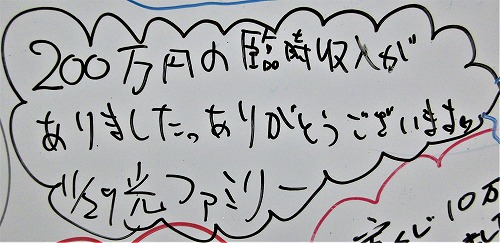 200万円の臨時収入が
ありました。ありがとうございます
11/29光ファミリー
宝くじ10万